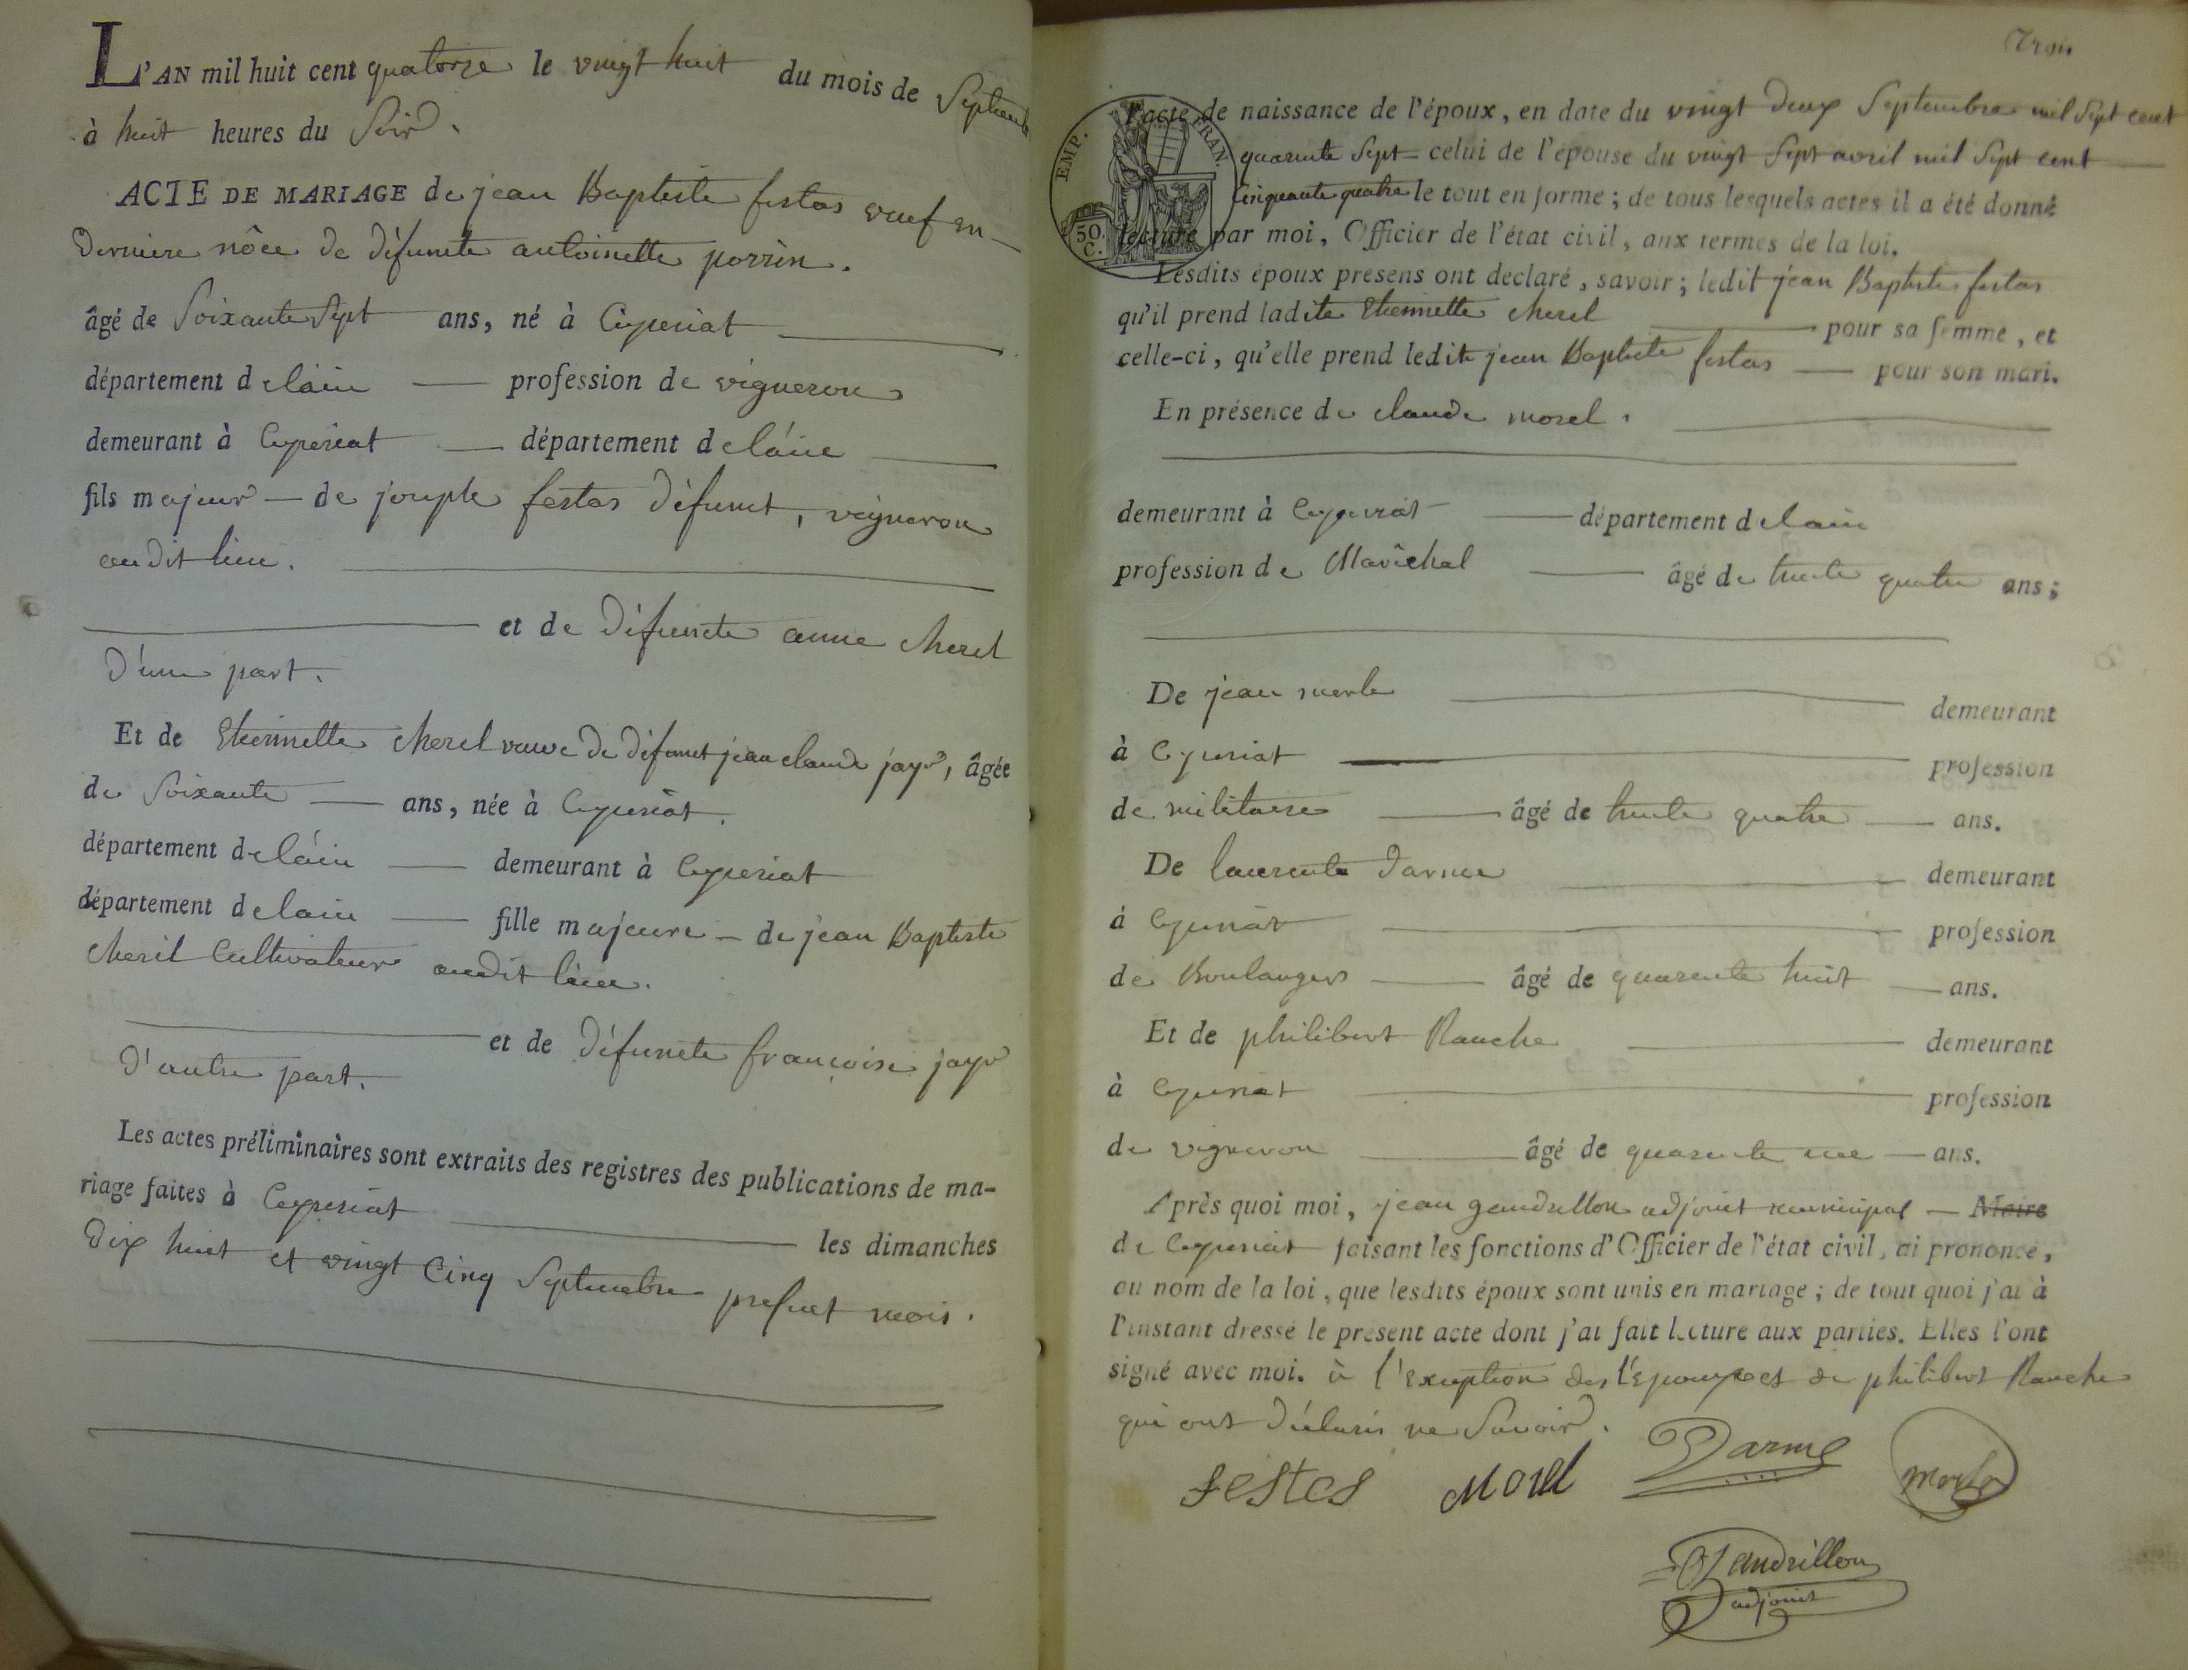 L'AN mil huit cent quatorze le vingt huit du mois de Septembre
à huit heures du Soir.
ACTE DE MARIAGE de jean Baptiste festas veuf en
derniere nôce de défuncte antoinette perrin.
âgé de Soixante Sept ans, né à Ceyzeriat
département de lain profession de vigneron
demeurant à Ceyzeriat département de láin
fils majeur de joseph festas défunct, vigneron
au dit lieu.
et de défuncte anne cherel
D'une part.
Et de Etiennette cherel veuve de défunct jean claude jayr, âgée
de Soixante ans, née à Ceyzeriat.
département de láin demeurant à Ceyzeriat
département de lain fille majeure de jean Baptiste
cherel Cultivateur audit lieu.
et de défuncte françoise jayr
D'autre part.
Les actes préliminaires sont extraits des registres des publications de ma-
riage faites à Ceyzeriat les dimanches
Dix huit et vingt Cinq Septembre présent mois.
Trois
EMP. FRAN
50.
C.
l'acte de naissance de l'époux, en date du vingt deux Septembre mil Sept cent
quarente Sept celui de l'épouse du vingt Sept avril mil Sept cent
Cinquante quatre le tout en forme; de tous lesquels actes il a été donné
lecture par moi, Officier de l'état civil, aux termes de la loi.
Lesdits époux présens ont declaré, savoir; ledit jean Baptiste festas
qu'il prend ladite Etiennette cherel pour sa femme, et
celle-ci, qu'elle prend ledit jean Baptiste festas pour son mari.
En présence de claude morel.
demeurant à Ceyzeriat département de lain
profession de Marêchal âgé de trente quatre ans;
De jean merle demeurant
à Ceyzeriat profession
de militaire âgé de trente quatre ans.
De laurent Darme demeurant
à Ceyzeriat profession
de Boulanger âgé de quarente huit ans.
Et de philibert Ranche demeurant
à Ceyzeriat profession
de vigneron âgé de quarente une ans.
Après quoi moi, jean gandrillon adjoint municipal Maire
de Ceyzeriat faisant les fonctions d'Officier de l'état civil, ai prononcé,
au nom de la loi, que lesdits époux sont unis en mariage; de tout quoi j'ai à
l'instant dressé le présent acte dont j'ai fait lecture aux parties. Elles l'ont
signé avec moi. à l'exception de l'Epouse et de philibert Ranche
qui ont déclaré ne Savoir.
festas Morel Darme merle
Gandrillon
adjoint